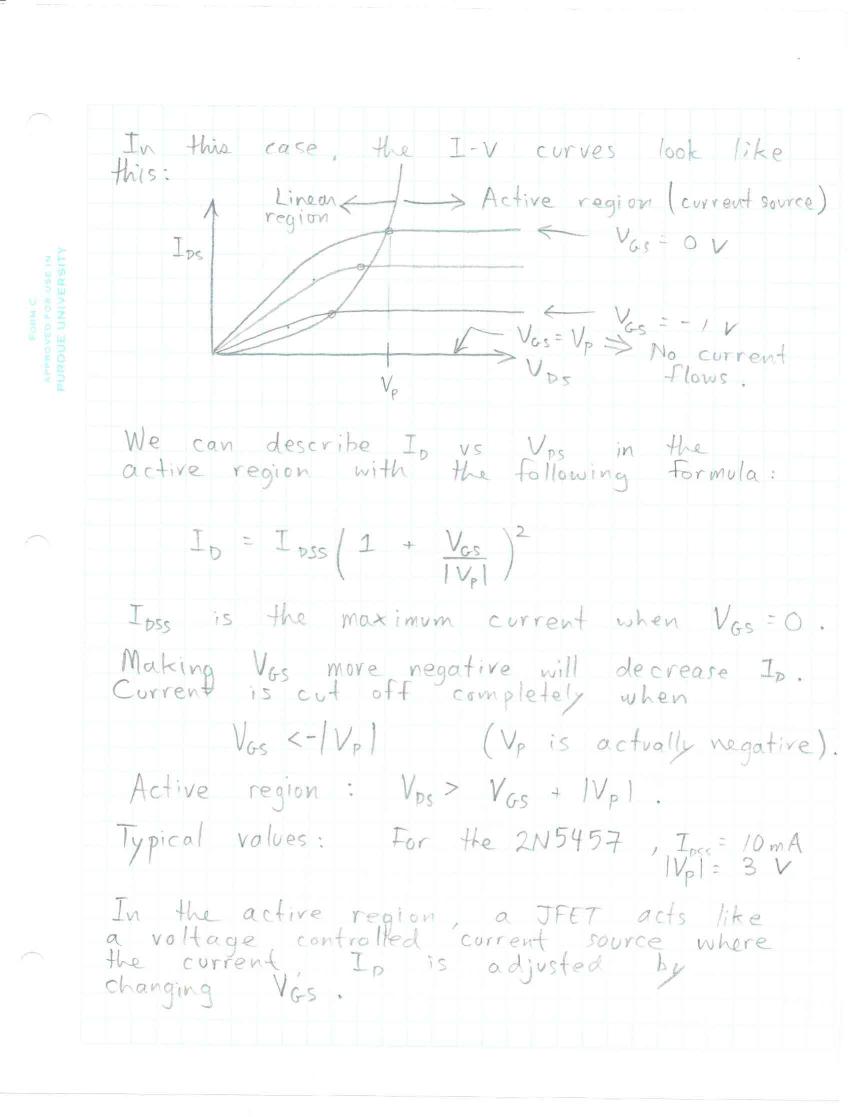 In this case, the I-V curves look like
this:
Linear region
Active region (current source)
I_DS
V_GS = 0 V
V_GS = -1 V
V_GS = V_P ⇒ No current flows.
V_DS
V_P
We can describe I_D vs V_DS in the
active region with the following formula:
I_D = I_DSS (1 + V_GS / |V_P|)^2
I_DSS is the maximum current when V_GS = 0.
Making V_GS more negative will decrease I_D.
Current is cut off completely when
V_GS < -|V_P| (V_P is actually negative).
Active region: V_DS > V_GS + |V_P|.
Typical values: For the 2N5457, I_DSS = 10 mA
|V_P| = 3 V
In the active region, a JFET acts like
a voltage controlled current source where
the current, I_D is adjusted by
changing V_GS.
FORM C
APPROVED FOR USE IN
PURDUE UNIVERSITY